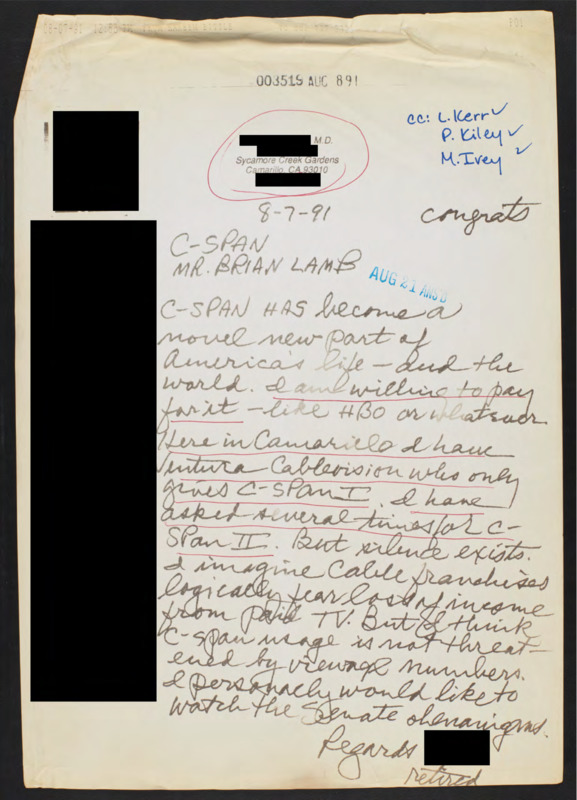 003519 AUG 891
cc: L. Kerr ✓
P. Kiley ✓
M. Ivey ✓
M.D.
Sycamore Creek Gardens
Camarillo, CA 93010
8-7-91
congrats
C-SPAN
MR. BRIAN LAMB
AUG 21 ANS'D
C-SPAN HAS become a
novel new part of
America's life - and the
world. I am willing to pay
for it - like HBO or whatever
Here in Camarillo I have
Ventura Cablevision who only
gives C-SPAN I. I have
asked several times for C-
SPAN II. But silence exists.
I imagine Cable franchises
logically fear loss of income
from paid TV. But I'd think
C-span usage is not threat-
ened by viewage numbers.
I personally would like to
watch the Senate
Regards
retired